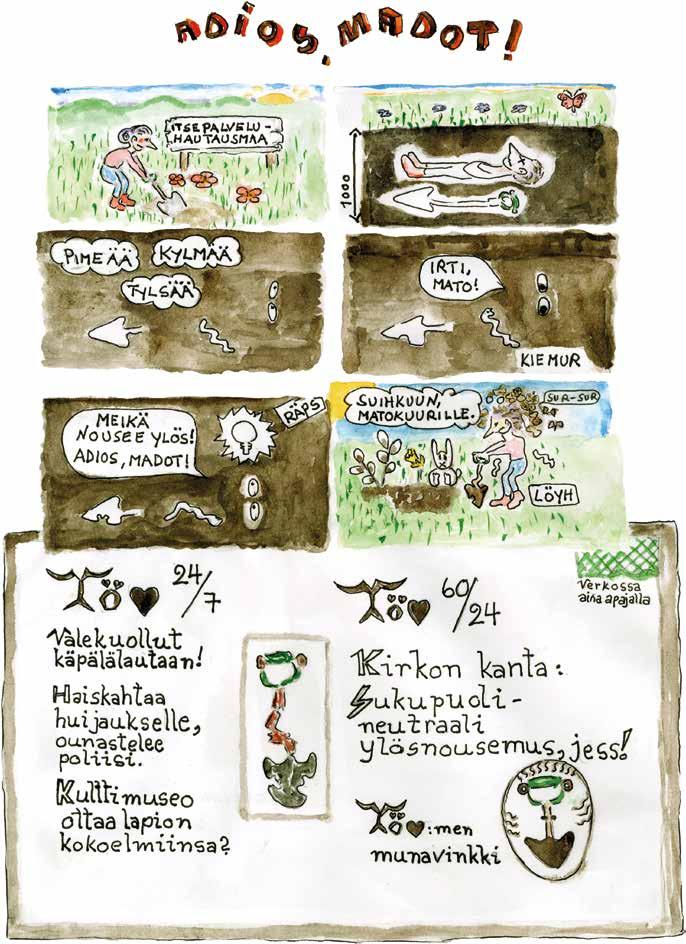 ADIOS, MADOT!
ITSEPALVELU-
HAUTAUSMAA
1000
PIMEÄÄ
KYLMÄÄ
TYLSÄÄ
IRTI,
MATO!
KIEMUR
MEIKÄ
NOUSEE YLÖS!
ADIOS, MADOT!
RÄPS
SUIHKUUN,
MATOKUURILLE.
SUR-SUR
LÖYH
Verkossa
aina apajalla
TÖ 24/7
Valekuollut
käpälälautaan!
Haiskahtaa
huijaukselle,
ounastelee
poliisi.
Kulttimuseo
ottaa lapion
kokoelmiinsa?
TÖ 60/24
Kirkon kanta:
Sukupuoli-
neutraali
ylösnousemus, jess!
TÖ♥:men
munavinkki